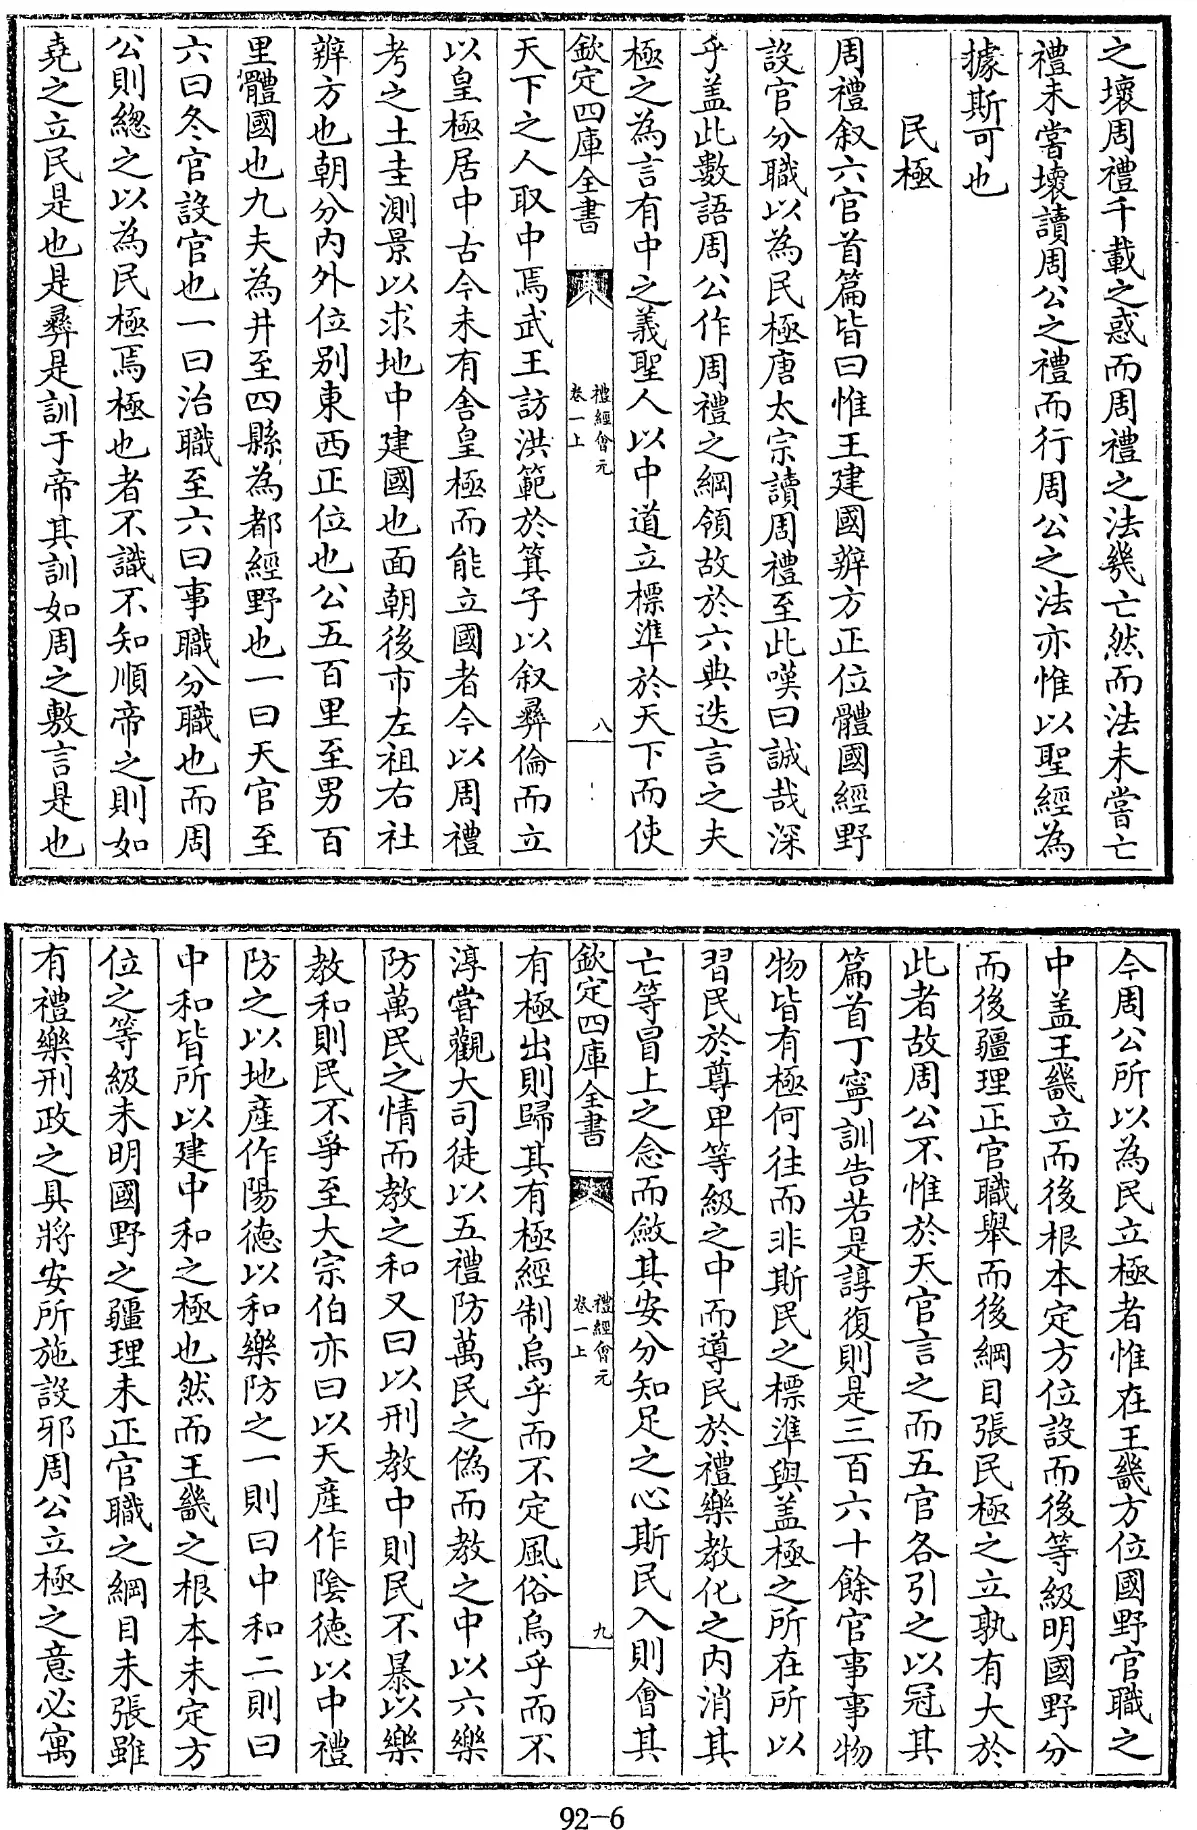 之壞周禮千載之惑而周禮之法幾亡然而法未嘗亡
禮未嘗壞讀周公之禮而行周公之法亦惟以聖經為
據斯可也
民極
周禮叙六官首篇皆曰惟王建國辨方正位體國經野
設官分職以為民極唐太宗讀周禮至此嘆曰誠哉深
乎盖此數語周公作周禮之綱領故於六典迭言之夫
極之為言有中之義聖人以中道立標準於天下而使
欽定四庫全書
禮經會元
卷一上
八
天下之人取中焉武王訪洪範於箕子以叙彝倫而立
以皇極居中古今未有舍皇極而能立國者今以周禮
考之土圭測景以求地中建國也面朝後市左祖右社
辨方也朝分內外位别東西正位也公五百里至男百
里體國也九夫為井至四縣為都經野也一曰天官至
六曰冬官設官也一曰治職至六曰事職分職也而周
公則總之以為民極焉極也者不識不知順帝之則如
堯之立民是也是彝是訓于帝其訓如周之敷言是也
今周公所以為民立極者惟在王畿方位國野官職之
中盖王畿立而後根本定方位設而後等級明國野分
而後疆理正官職舉而後綱目張民極之立孰有大於
此者故周公不惟於天官言之而五官各引之以冠其
篇首丁寧訓告若是諄復則是三百六十餘官事事物
物皆有極何往而非斯民之標準與盖極之所在所以
習民於尊卑等級之中而導民於禮樂教化之内消其
亡等冒上之念而斂其安分知足之心斯民入則會其
欽定四庫全書
禮經會元
卷一上
九
有極出則歸其有極經制烏乎而不定風俗烏乎而不
淳嘗觀大司徒以五禮防萬民之偽而教之中以六樂
防萬民之情而教之和又曰以刑教中則民不暴以樂
教和則民不爭至大宗伯亦曰以天產作陰德以中禮
防之以地產作陽德以和樂防之一則曰中和二則曰
中和皆所以建中和之極也然而王畿之根本未定方
位之等級未明國野之疆理未正官職之綱目未張雖
有禮樂刑政之具將安所施設邪周公立極之意必寓
92-6